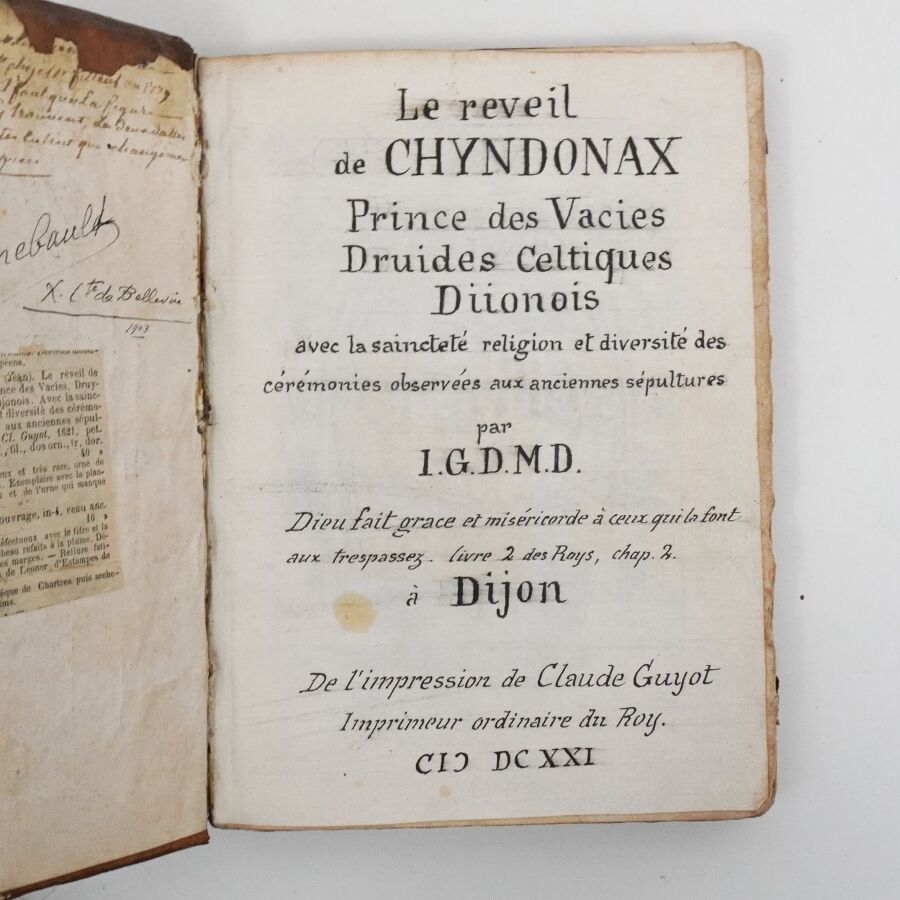 fait que La figure
nebault
X. Cte de Bellevue
1903
péens.
(Jean). Le réveil de
nce des Vacies, Druy-
ijonois. Avec la sainc-
t diversité des cérémo-
aux anciennes sépul-
Cl. Guyot, 1621, pet.
, fil., dos orn., tr. dor.
40 »
eux et très rare, orné de
. Exemplaire avec la plan-
et de l'urne qui manque
ouvrage, in-4, veau anc.
10 »
éfectueux avec le titre et la
beau refaits à la plume. Dé-
es marges. — Reliure fati-
de Leonor d'Estampes de
èque de Chartres puis arche-
ims.
Le reveil
de CHYNDONAX
Prince des Vacies
Druides Celtiques
Diionois
avec la saincteté religion et diversité des
cérémonies observées aux anciennes sépultures
par
I.G.D.M.D.
Dieu fait grace et miséricorde à ceux qui la font
aux trespassez. livre 2 des Roys, chap. 2.
à Dijon
De l'impression de Claude Guyot
Imprimeur ordinaire du Roy.
CIↃ DC XXI